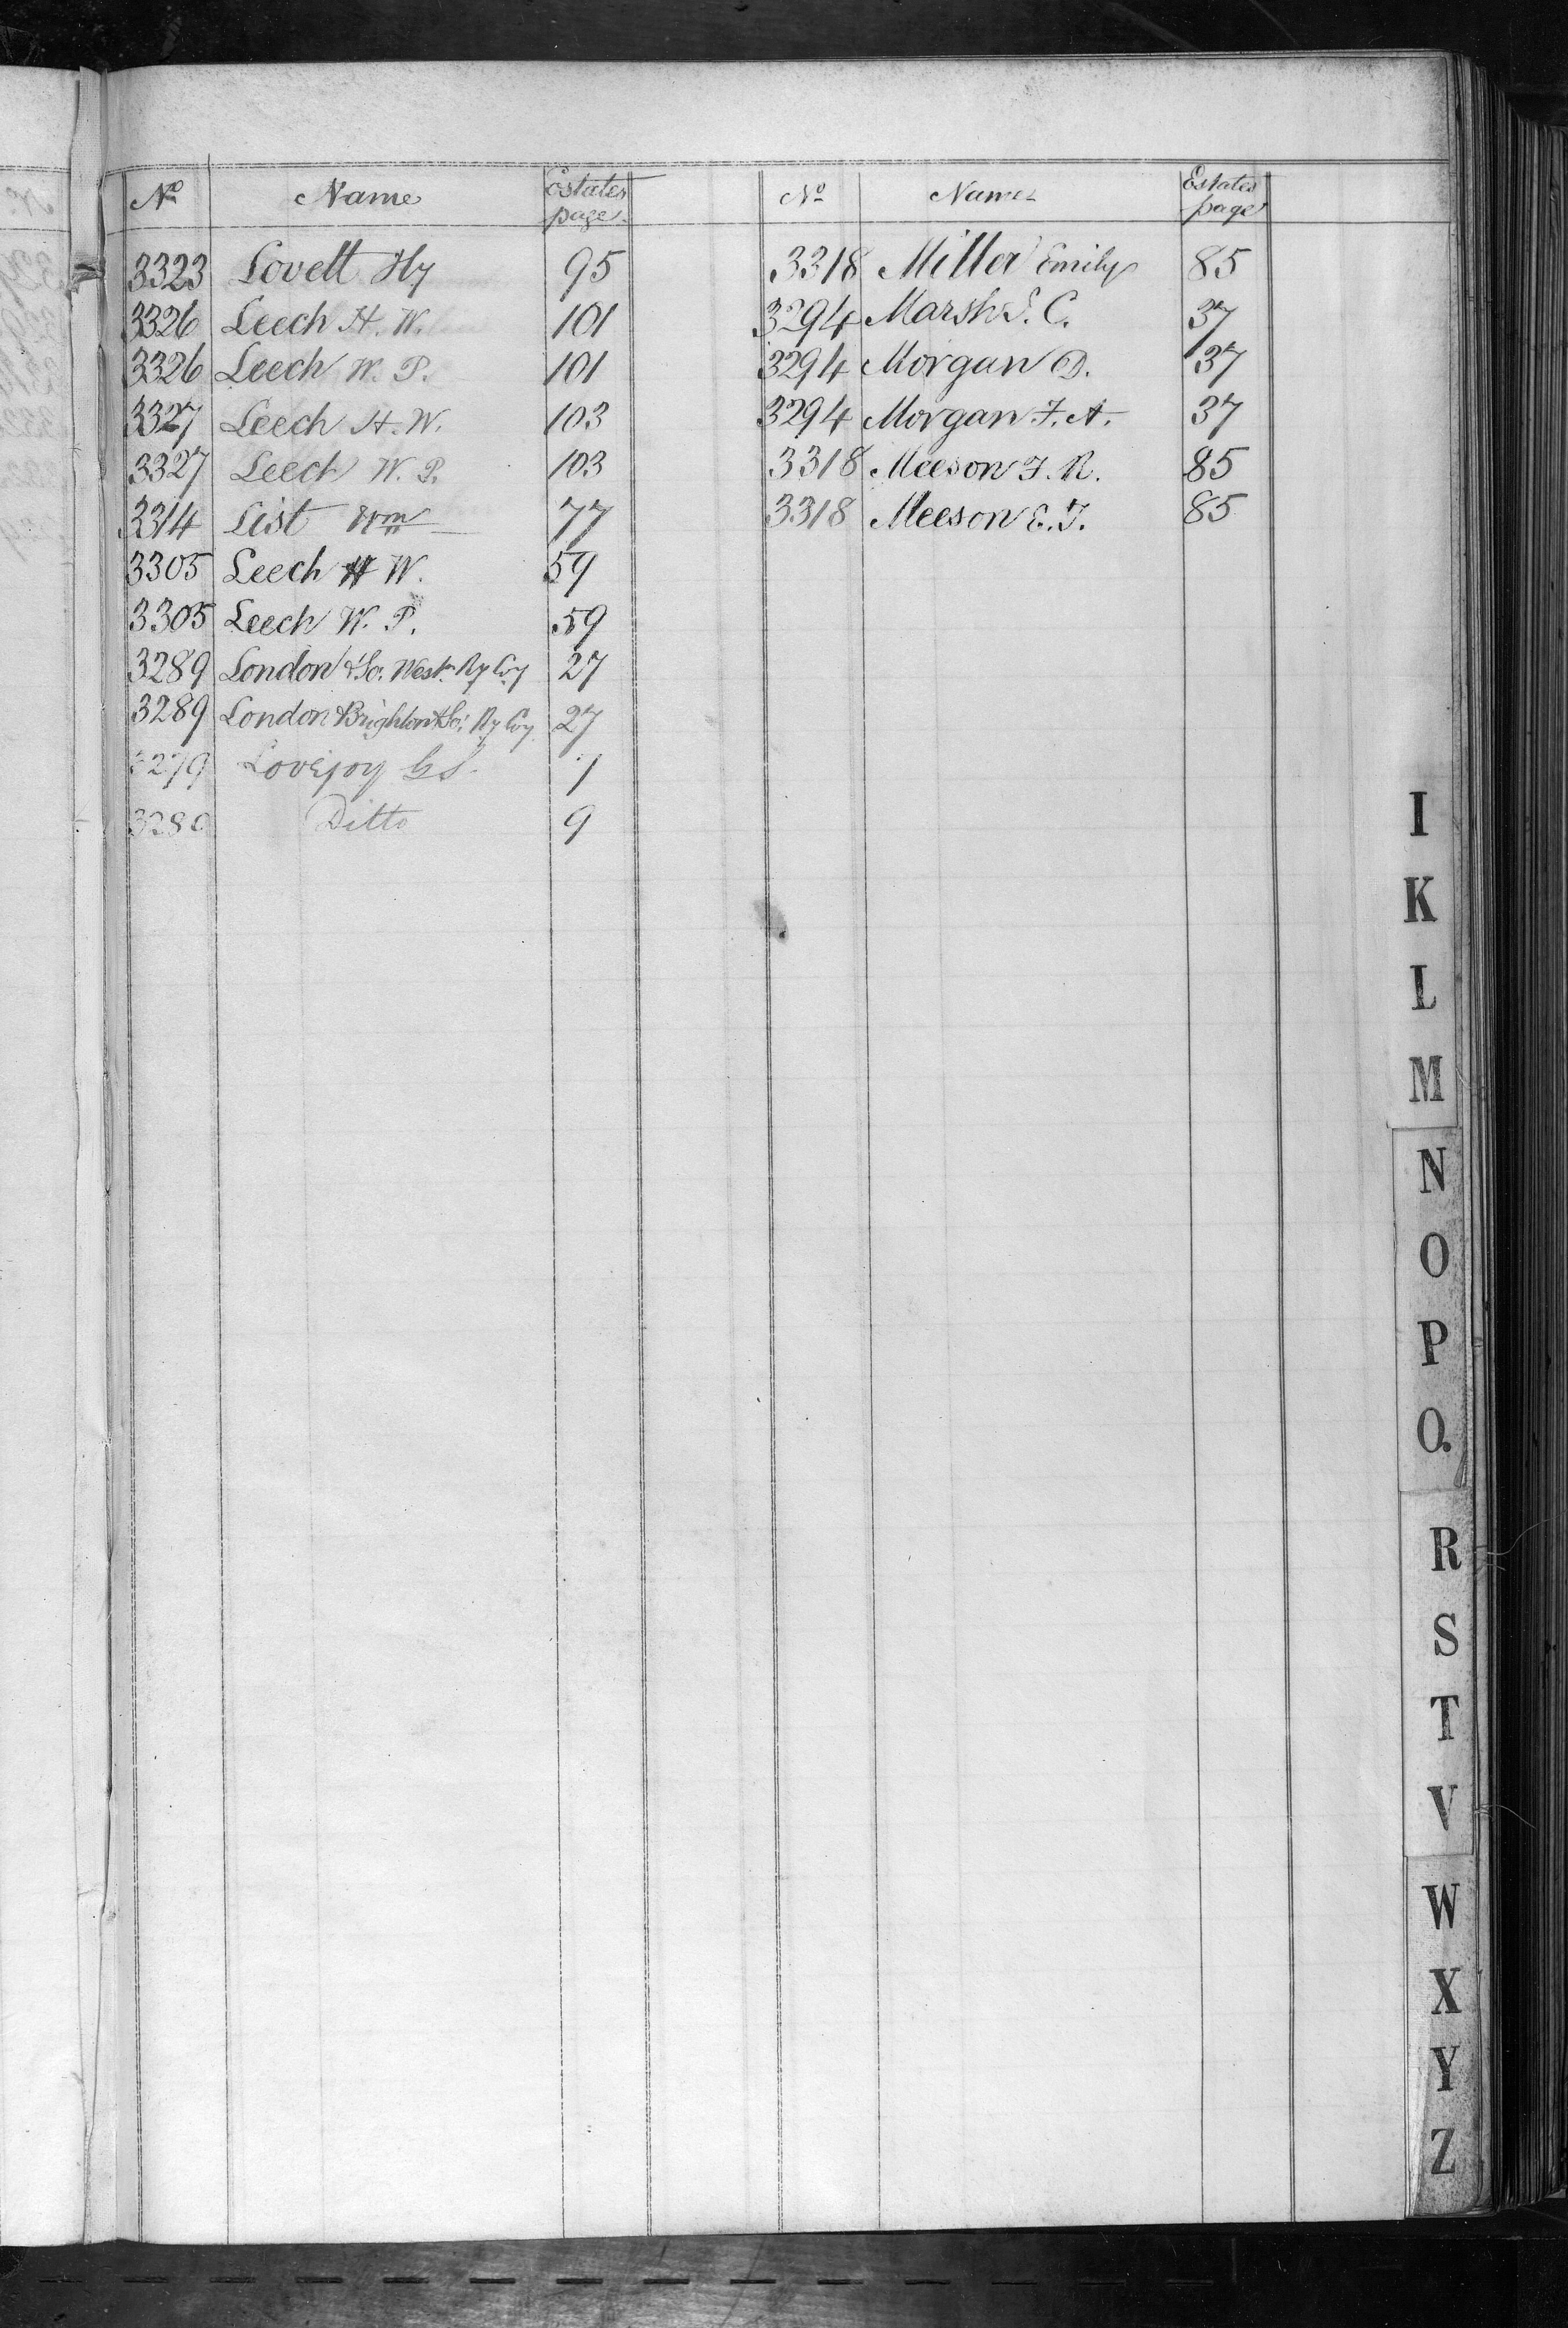 No Name Estates page
3323 Lovett Hy 95
3326 Leech H. W. 101
3326 Leech W. P. 101
3327 Leech H. W. 103
3327 Leech W. P. 103
3314 List Wm 77
3305 Leech H W. 59
3305 Leech W. P. 59
3289 London & So. West. Ry Coy 27
3289 London Brighton & So: Ry Coy. 27
3279 Lovejoy
3280 Ditto 9
No Name Estates page
3318 Miller Emily 85
3294 Marsh S. C. 37
3294 Morgan D. 37
3294 Morgan F. A. 37
3318 Meeson F. R. 85
3318 Meeson E. J. 85
I
K
L
M
N
O
P
Q.
R
S
T
V
W
X
Y
Z